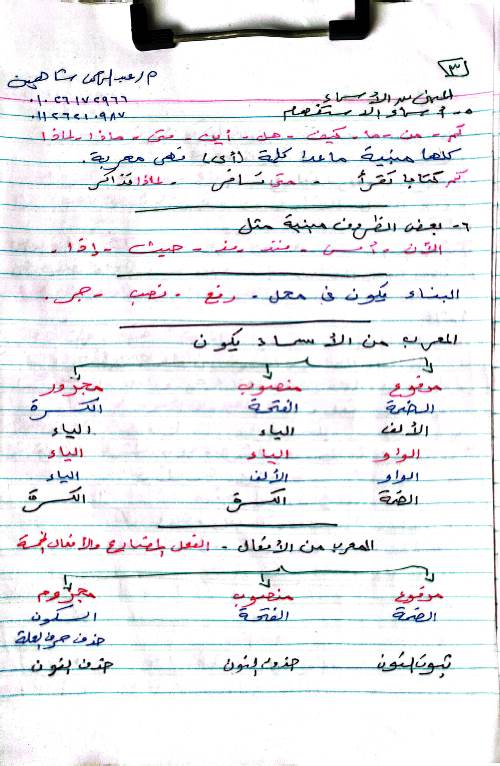 ٣
م/عبدالرحمن شاهين
٠١٠٢٦١٧٢٩٦٦
المبنى من الأسماء
٥- أسماء الاستفهام
٠١١٢٦٢١٠٩٨٧
كم - من - ما - كيف - هل - أين - متى - ماذا - لماذا
كلها مبنية ماعدا كلمة (أى) فهى معربة.
كم كتابا تقرأ - متى تسافر - لماذا تذاكر
٦- بعض الظروف مبنية مثل
الآن - أمس - منذ - مذ - حيث - إذا.
البناء يكون فى محل - رفع - نصب - جر.
المعرب من الأسماء يكون
مرفوع منصوب مجرور
الضمة الفتحة الكسرة
الألف الياء الياء
الواو الياء الياء
الواو الألف الياء
الضمة الكسرة الكسرة
المعرب من الأفعال - الفعل المضارع والأفعال الخمسة
مرفوع منصوب مجزوم
الضمة الفتحة السكون
حذف حرف العلة
ثبوت النون حذف النون حذف النون